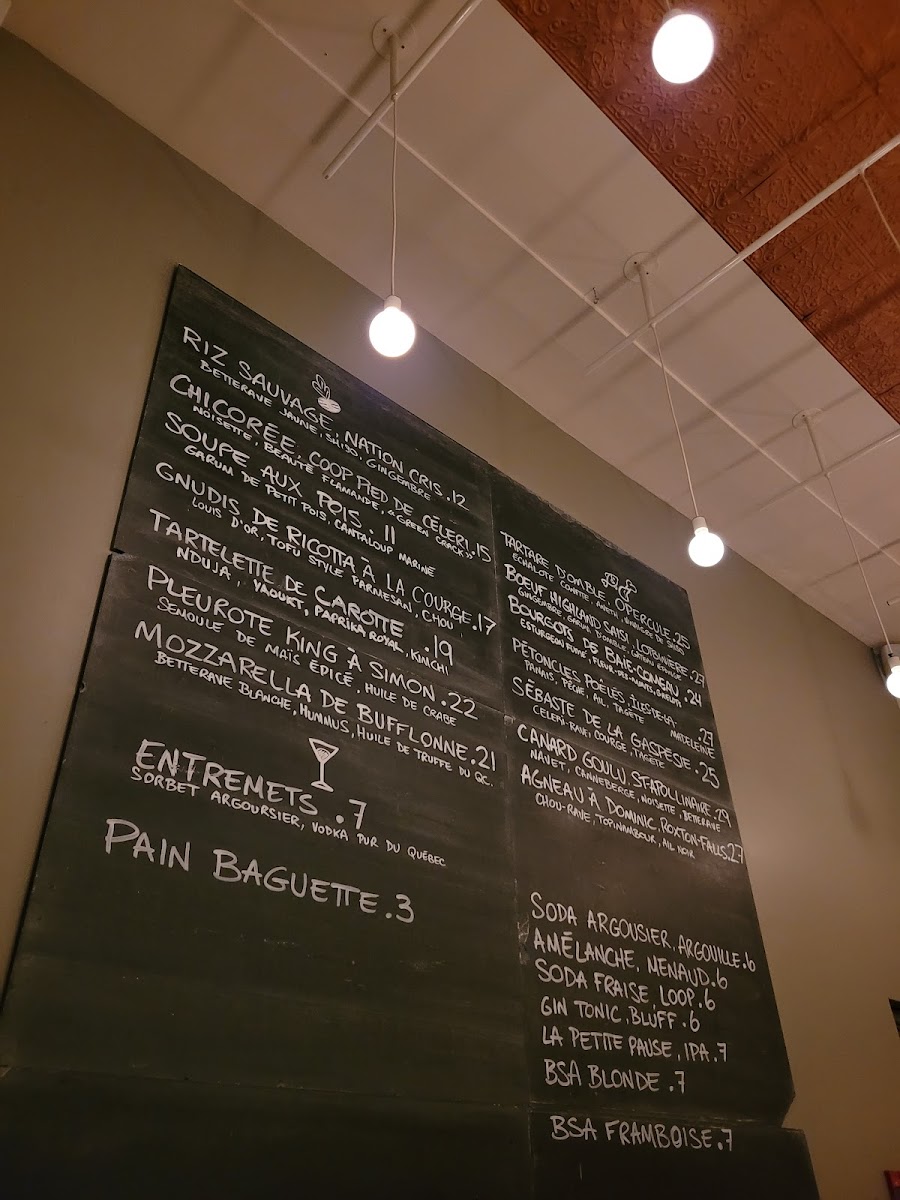 RIZ SAUVAGE, NATION CRIS.12
BETTERAVE JAUNE, SHISO, GINGEMBRE
CHICORÉE, COOP PIED DE CÉLERI.15
NOISETTE, BEAUTÉ FLAMANDE, "GREEN CRACK"
SOUPE AUX POIS.11
GARUM DE PETIT POIS, CANTALOUP MARINÉ
GNUDIS DE RICOTTA À LA COURGE.17
LOUIS D'OR, TOFU STYLE PARMESAN, CHOU
TARTELETTE DE CAROTTE.19
NDUJA, YAOURT, PAPRIKA ROYAL, KIMCHI
PLEUROTE KING À SIMON.22
SEMOULE DE MAÏS ÉPICÉ, HUILE DE CRABE
MOZZARELLA DE BUFFLONNE.21
BETTERAVE BLANCHE, HUMMUS, HUILE DE TRUFFE DU QC.
ENTREMETS.7
SORBET ARGOURSIER, VODKA PUR DU QUÉBEC
PAIN BAGUETTE.3
TARTARE D'OMBLE, OPERCULE.25
ECHALOTE CONFITE, ANETH, VINAIGRE DE
BOEUF HIGHLAND SAISI, LOTBINIÈRE.27
GINGEMBRE, GARUM D'OMBLE,
BOURGOTS DE BAIE-COMEAU.24
ESTURGEON FUMÉ,
PÉTONCLES POÊLÉS, ILES-DE-LA-MADELEINE.27
PANAIS, PÊCHE, AIL, TAGÈTE
SÉBASTE DE LA GASPÉSIE.25
CELERI-RAVE, COURGE, TAGETE
CANARD GOULU, ST-APOLLINAIRE.29
NAVET, CANNEBERGE, NOISETTE, BETTERAVE
AGNEAU À DOMINIC, ROXTON-FALLS.27
CHOU-RAVE, TOPINNABOUR, AIL NOIR
SODA ARGOUSIER, ARGOUILLE.6
AMÉLANCHE, MENAUD.6
SODA FRAISE, LOOP.6
GIN TONIC, BLUFF.6
LA PETITE PAUSE, IPA.7
BSA BLONDE.7
BSA FRAMBOISE.7